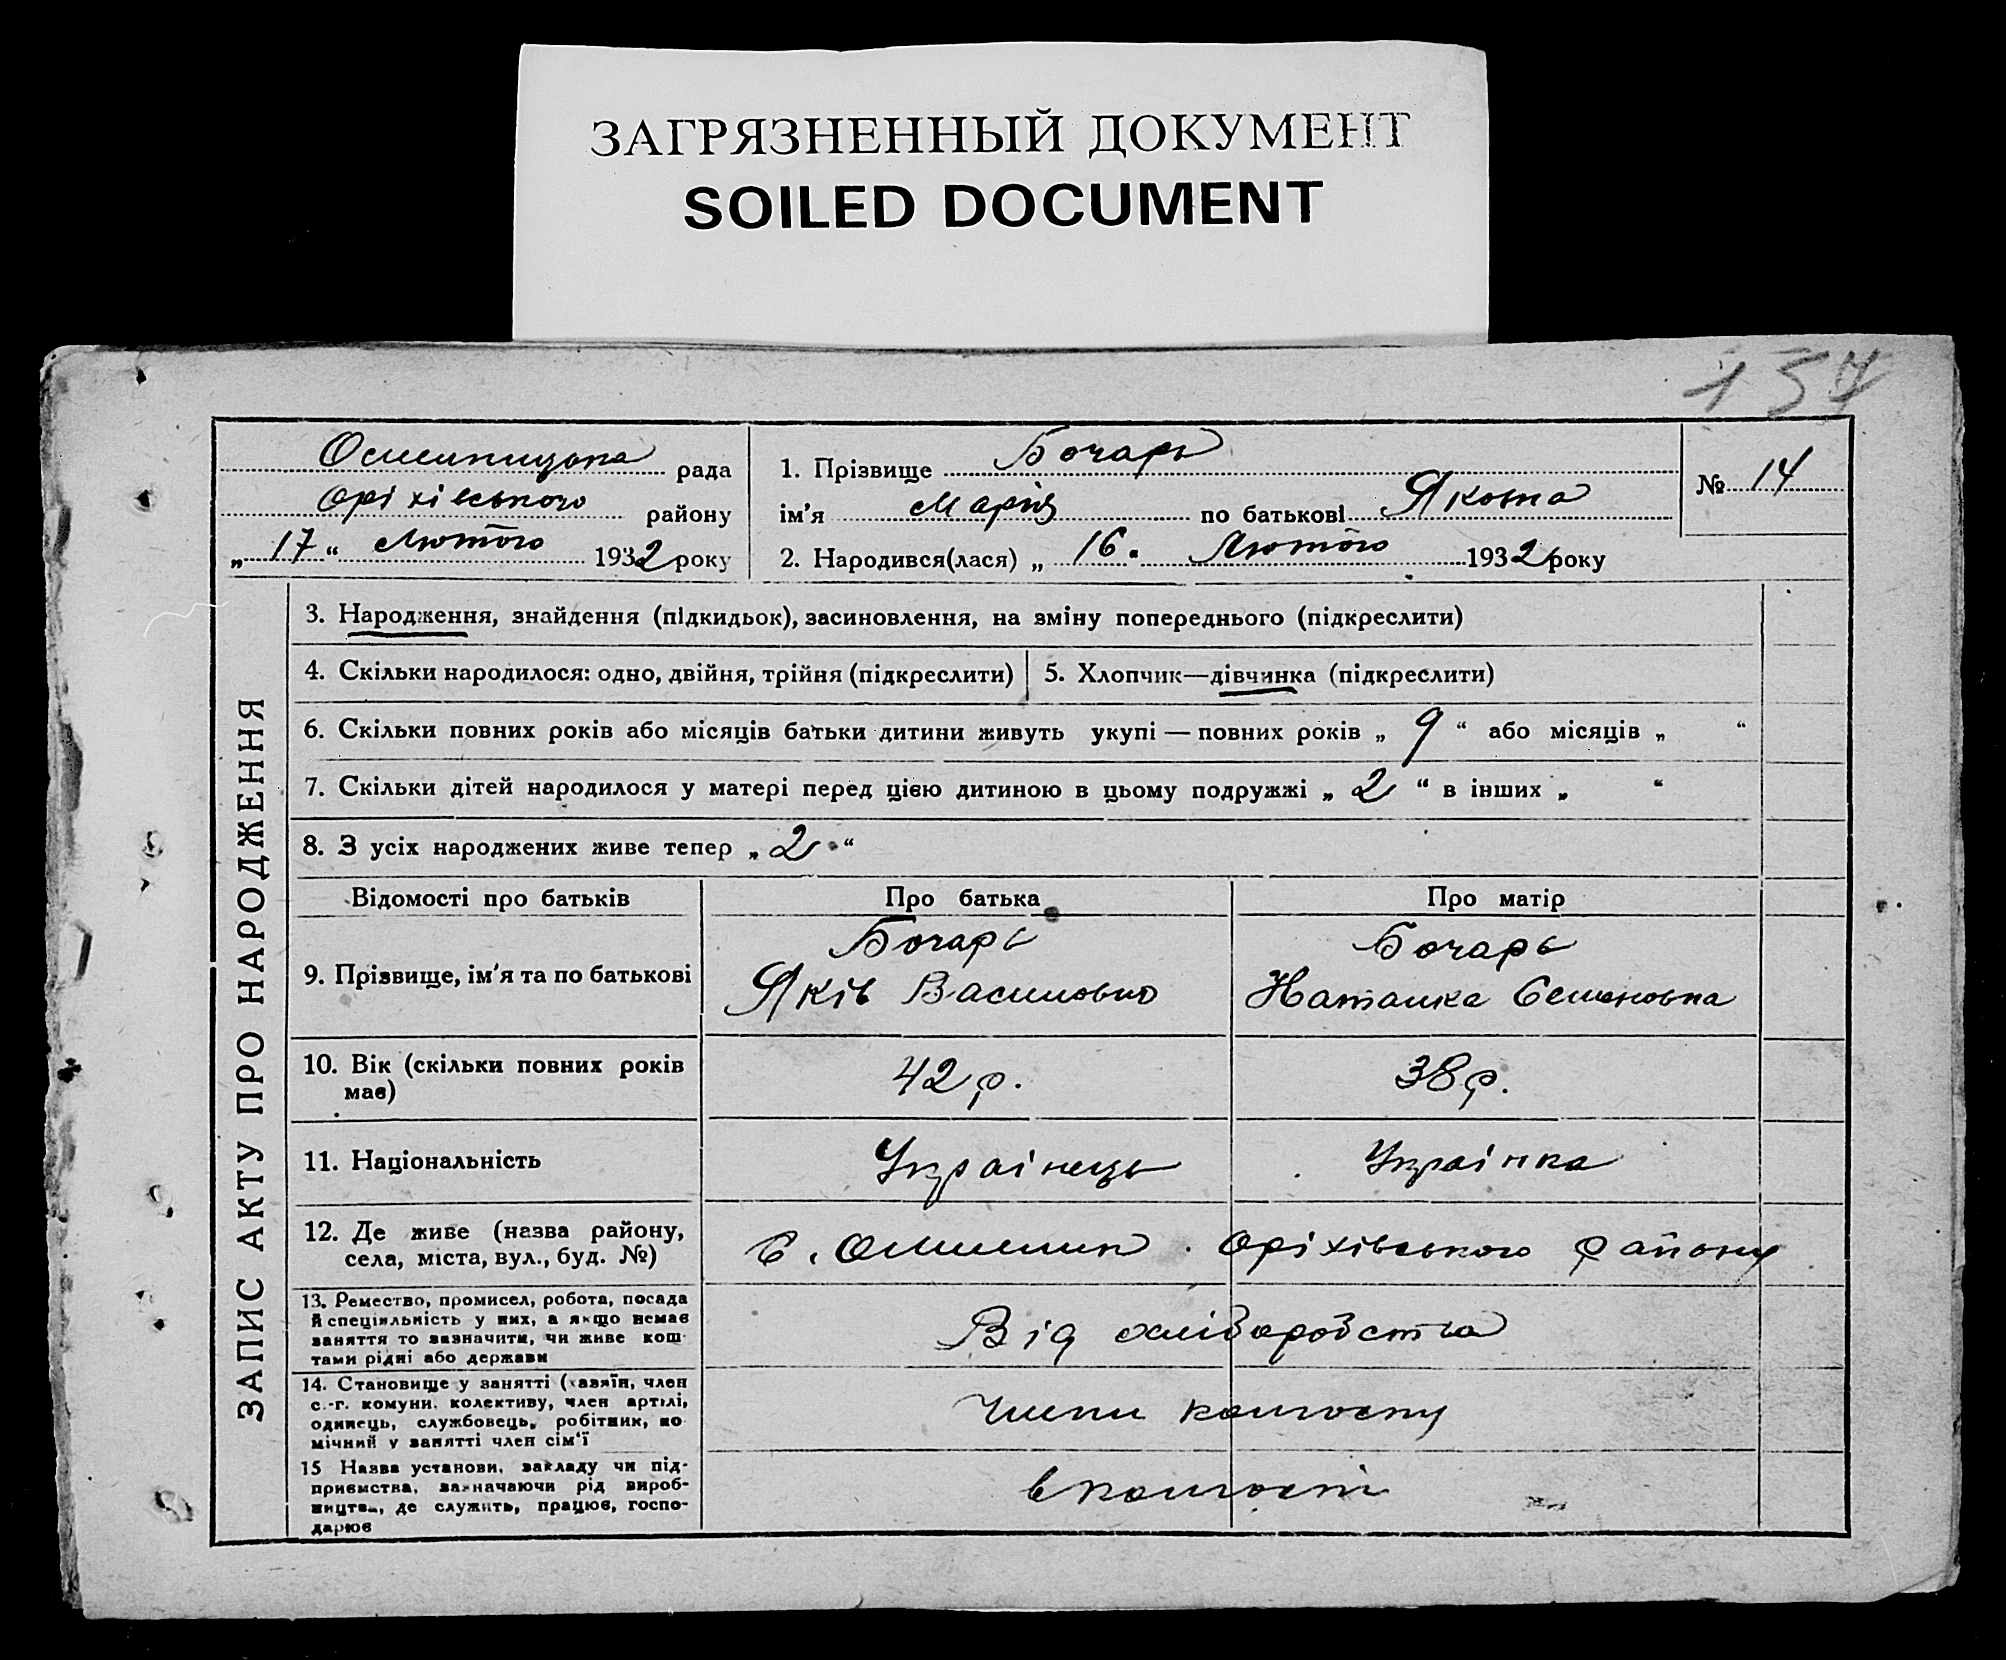 ЗАГРЯЗНЕННЫЙ ДОКУМЕНТ
SOILED DOCUMENT
рада
Оріхівського району
„17“ Лютого 1932 року
1. Прізвище Бочарь
ім'я Марія по батькові Яковна
2. Народився(лася) „16. Лютого 1932 року
№ 14
ЗАПИС АКТУ ПРО НАРОДЖЕННЯ
3. Народження, знайдення (підкидьок), засиновлення, на зміну попереднього (підкреслити)
4. Скільки народилося: одно, двійня, трійня (підкреслити)
5. Хлопчик—дівчинка (підкреслити)
6. Скільки повних років або місяців батьки дитини живуть укупі — повних років „ 9 “ або місяців „ “
7. Скільки дітей народилося у матері перед цією дитиною в цьому подружжі „ 2 “ в інших „ “
8. З усіх народжених живе тепер „ 2 “
Відомості про батьків
Про батька
Про матір
9. Прізвище, ім'я та по батькові
Бочарь
Яків
Бочарь
Наталка Семеновна
10. Вік (скільки повних років
має)
42 р.
38 р.
11. Національність
Українець
Українка
12. Де живе (назва району,
села, міста, вул., буд. №)
С. Омельник Оріхівського району
13. Ремество, промисел, робота, посада
й спеціяльність у них, а якщо немає
заняття то зазначити, чи живе кош-
тами рідні або держави
Від хліборобства
14. Становище у занятті (хазяїн, член
с.-г. комуни, колективу, член артілі,
одинець, службовець, робітник, по-
мічний у занятті член сім'ї
Члени колгоспу
15 Назва установи, закладу чи під-
приємства, зазначаючи рід вироб-
ництва, де служить, працює, госпо-
дарює
в колгоспі